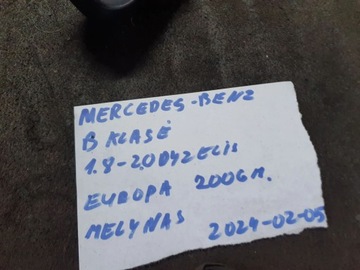 MERCEDES-BENZ
B KLASĖ
1.8-2.0DYZELIS
EUROPA 2006M.
MELYNAS 2024-02-05